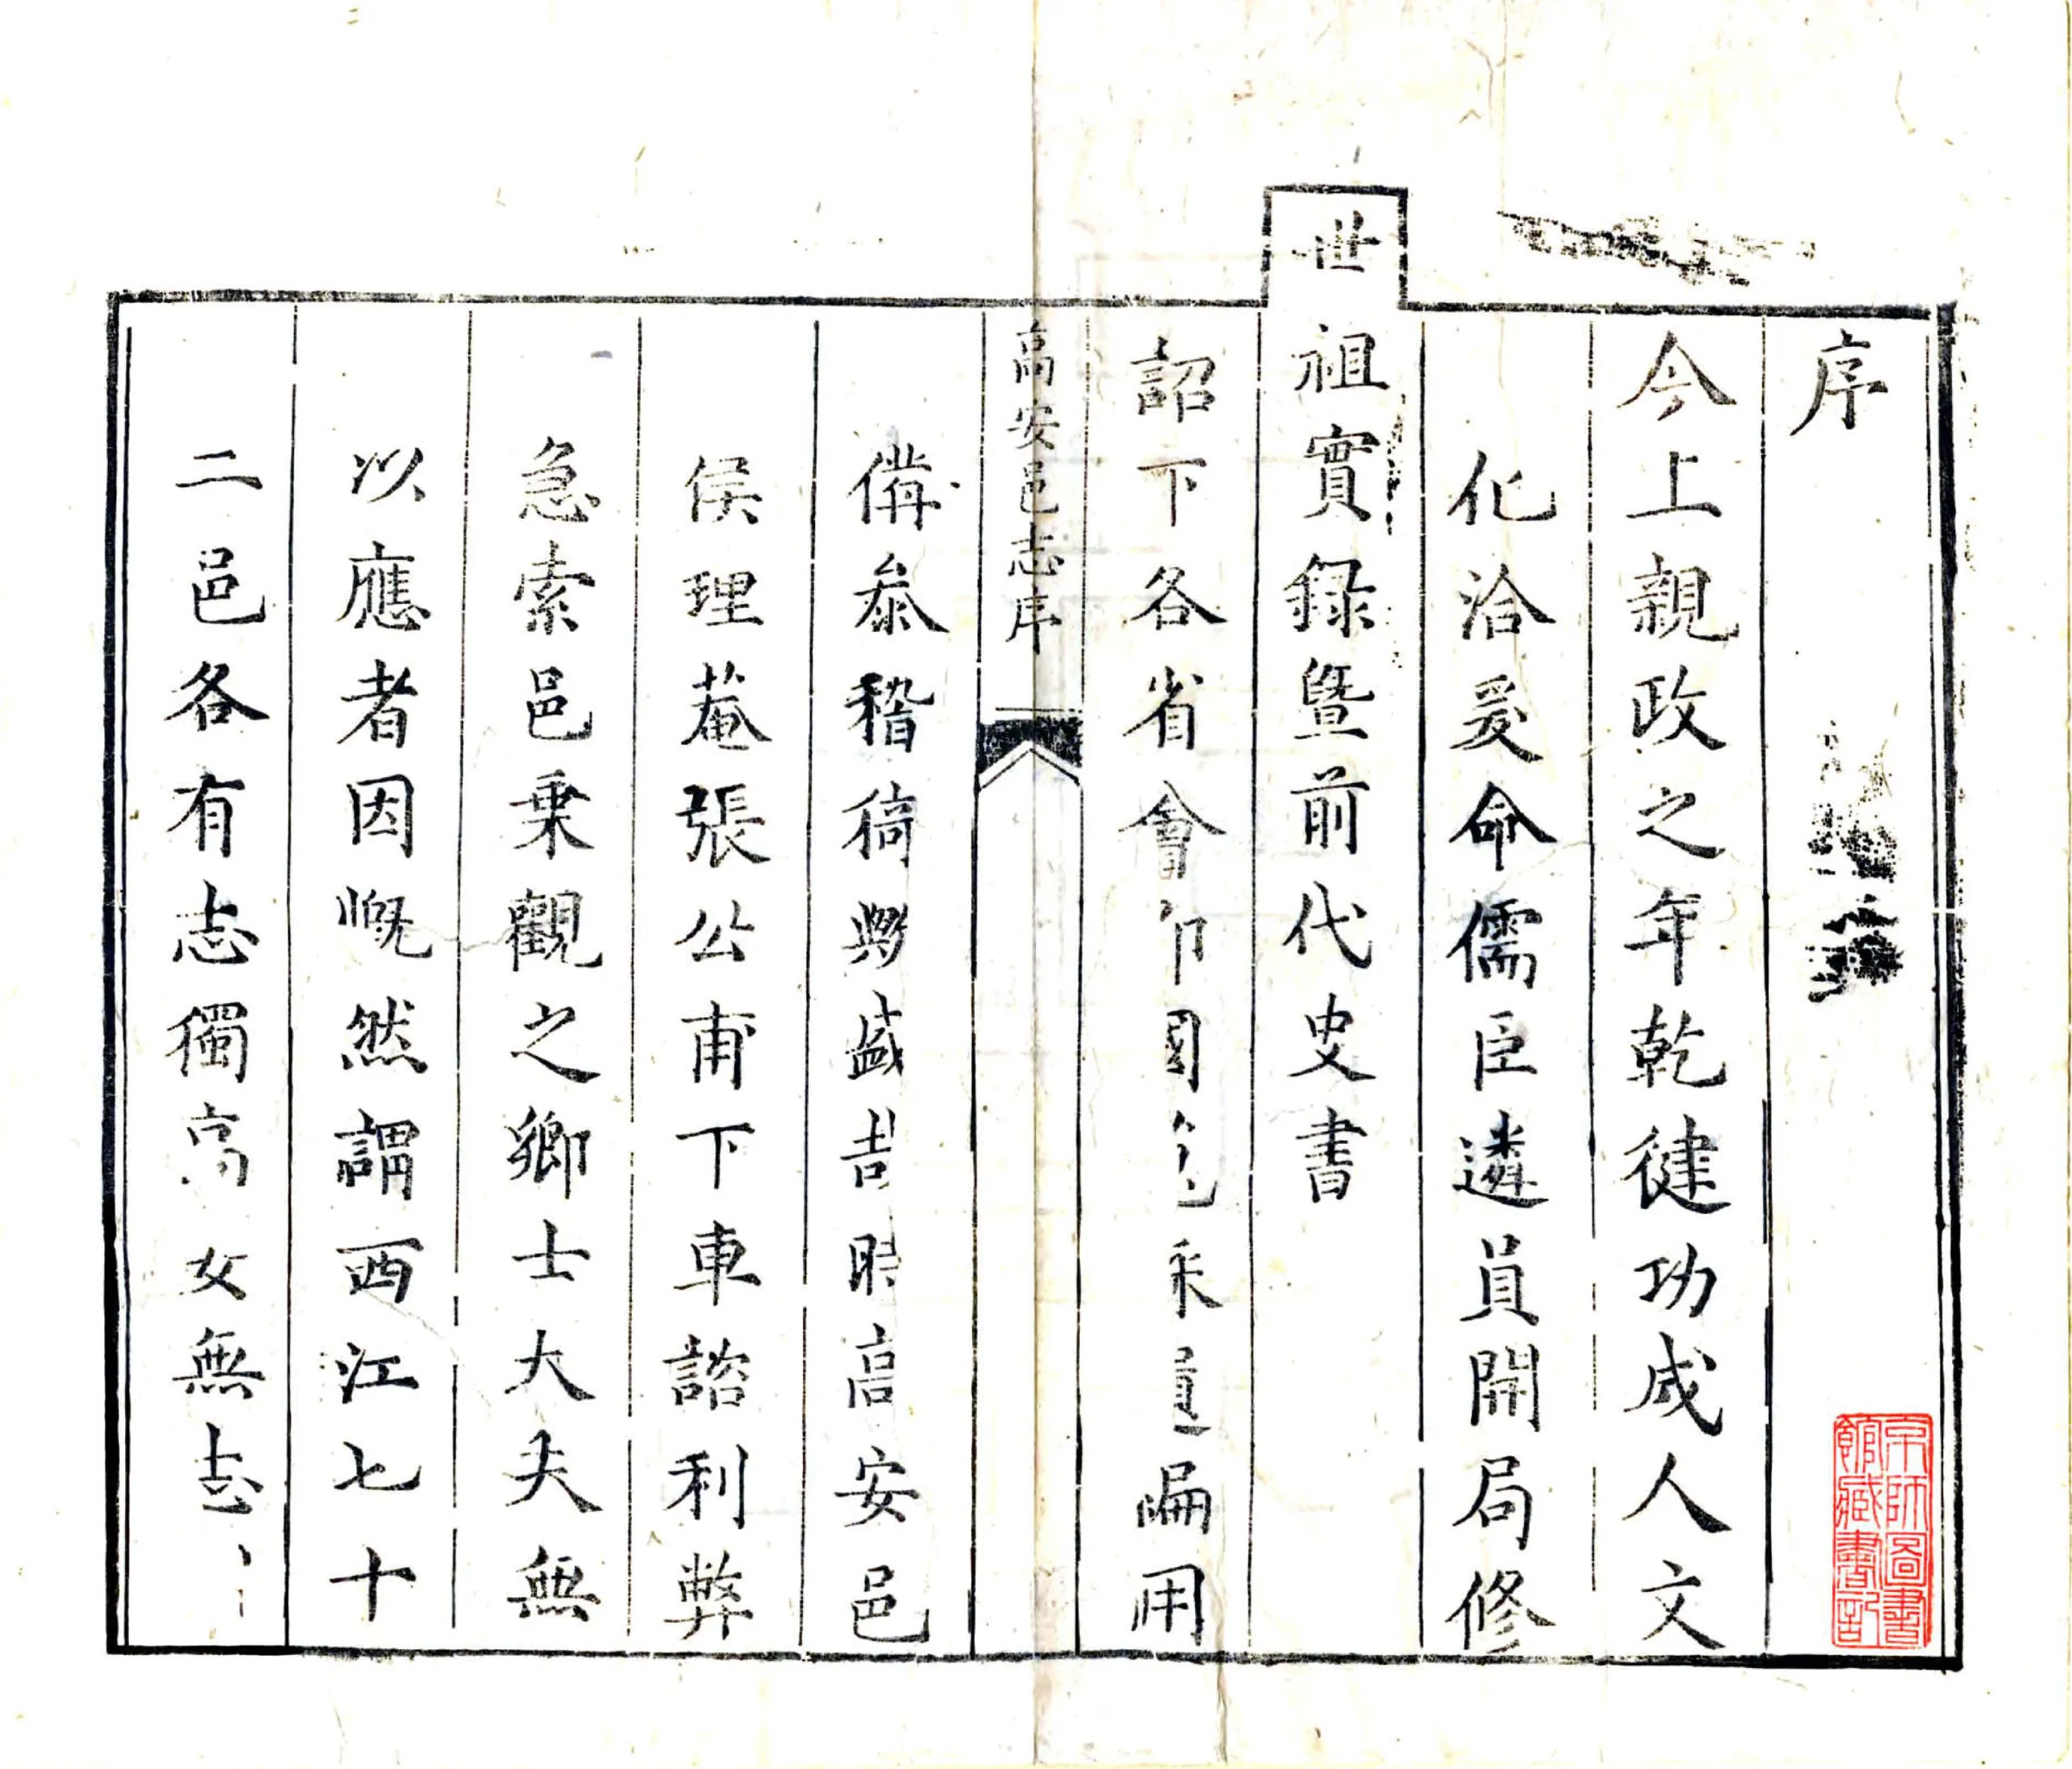 序
今上親政之年乾健功成人文
化洽爰命儒臣遴員開局修
世祖實錄曁前代史書
詔下各省會郡國采遍用
高安邑志序
備叅稽猗歟盛時高安邑
侯理菴張公甫下車諮利弊
急索邑乗觀之鄉士大夫無
以應者因慨然謂西江七十
二邑各有志獨高安無志
京師圖書
館臧書記